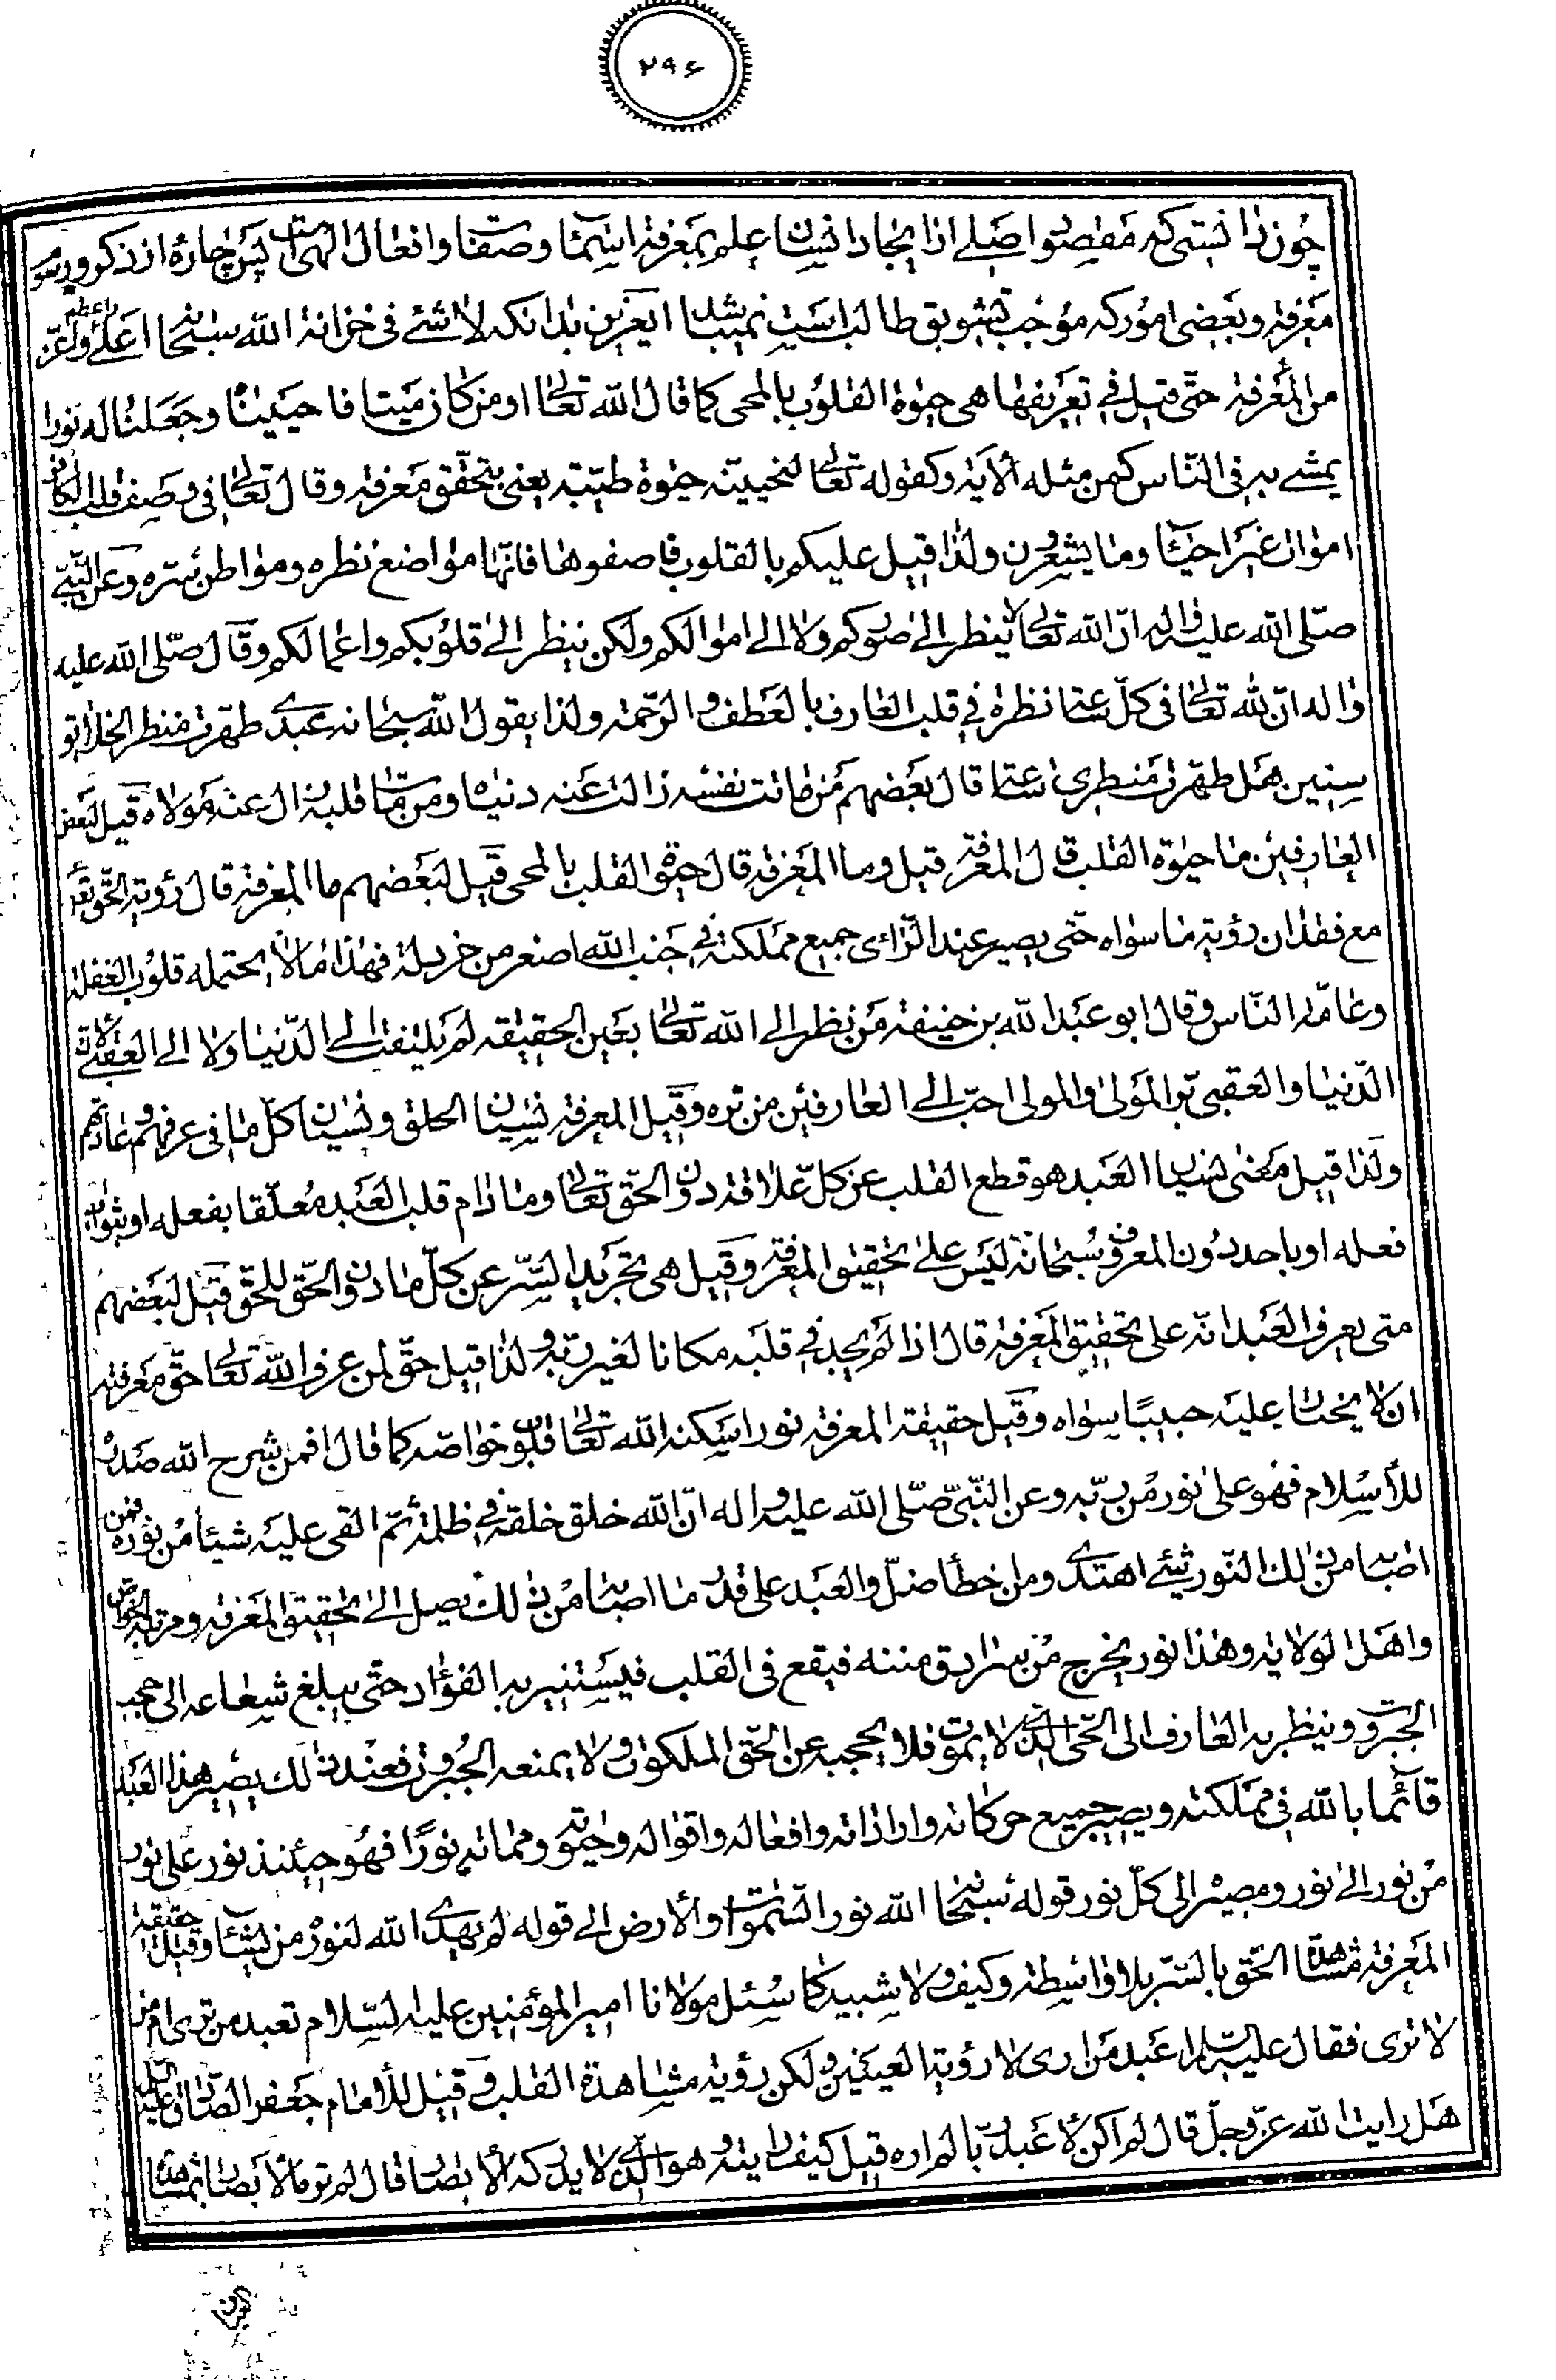 ۲۹۶
چون دانستی که مقصود اصلی از ایجاد انسان علم بمعرفة اسماء و صفات و افعال الهی است پس چاره از ذکر و
معرفة و بعضی امور که موجب تشویق طالب است نمیباشد ایعزیز بدانکه لا شئ فی خزانة الله سبحانه اعلی و اعز
من المعرفة حتی قیل فی تعریفها هی حیوة القلوب بالمحی کما قال الله تعالی او من کان میتا فاحییناه و جعلنا له نورا
یمشی به فی النّاس کمن مثله الآیة و کقوله تعالی لنحیینّه حیوة طیّبة یعنی بتحقّق معرفة و قال تعالی فی وصف قلب الکافر
اموات غیر احیاء و ما یشعرون ولذا قیل علیکم بالقلوب فاصفوها فانّها مواضع نظره و مواطن سرّه و عن النّبیّ
صلّی الله علیه و اله انّ الله تعالی لا ینظر الی صورکم ولا الی اموالکم ولکن ینظر الی قلوبکم و اعمالکم و قال صلّی الله علیه
و اله ان لله تعالی فی کلّ ساعة نظرة فی قلب العارف بالعطف و الرّحمة ولذا یقول الله سبحانه عبدی طهرت منظر الخلایق
سنین هل طهرت منظری ساعة قال بعضهم من ماتت نفسه زالت عنه دنیاه و من مات قلبه زال عنه مولاه قیل لبعض
العارفین ما حیوة القلب قال المعرفة قیل وما المعرفة قال حیوة القلب بالمحی قیل لبعضهم ما المعرفة قال رؤیة الحقّ
مع فقدان رؤیة ما سواه حتّی یصیر عند الرّائی جمیع مملکته فی جنب الله اصغر من خردلة فهذا ما لا یحتمله قلوب الغفلة
و عامّة النّاس و قال ابو عبدالله بن خفیفة من نظر الی الله تعالی بعین الحقیقه لم یلتفت الی الدّنیا ولا الی العقبی لانّ
الدّنیا و العقبی برّ المولی و المولی احبّ الی العارفین من برّه و قیل المعرفة نسیان الخلق و نسیان کلّ ما فی عرفهم و عاداتهم
ولذا قیل معنی نسیان العبد هو قطع القلب عن کلّ علاقة دون الحقّ تعالی و ما دام قلب العبد معلّقا بفعله او بثواب
فعله او باحد دون المعروف سبحانه لیس علی تحقیق المعرفة و قیل هی تجرید السّر عن کلّ ما دون الحقّ للحقّ قیل لبعضهم
متی یعرف العبد انّه علی تحقیق المعرفة قال اذا لم یجد فی قلبه مکانا لغیر ربّه ولذا قیل حقّ لمن عرف الله تعالی حقّ معرفته
ان لا یختار علیه حبیبًا سواه و قیل حقیقة المعرفة نور اسکنه الله تعالی قلوب خواصّه کما قال افمن شرح الله صدره
للأسلام فهو علی نور من ربّه و عن النّبیّ صلّی الله علیه و اله انّ الله خلق خلقه فی ظلمة ثمّ القی علیه شیئا من نوره فمن
اصابه من ذلک النّور شیئ اهتدی و من اخطأ ضلّ و العبد علی قدر ما اصابه من ذلک یصل الی تحقیق المعرفة و مرتبة الخواصّ
و اهل الولایة و هذا نور یخرج من سرادق مننه فیقع فی القلب فیستنیر به الفؤاد حتّی یبلغ شعاعه الی حجب
الجبروت و ینظر به العارف الی الحّی الذی لا یموت فلا یحجبه عن الحّق الملکوت ولا یمنعه الجبروت فعند ذلک یصیر هذا العبد
قآئما بالله فی مملکته و یصیر جمیع حرکاته و اراداته و افعاله و اقواله و حیوته و مماته نورًا فهو حینئذ نور علی نور
من نور الی نور و مصیره الی کلّ نور قوله سبحانه الله نور السّموات و الأرض الی قوله لم یهدی الله لنوره من یشاء و قیل حقیقة
المعرفة مشاهدة الحّق بالسّر بلا واسطة و کیف ولا شبیه کما سئل مولانا امیر المؤمنین علیه السّلام تعبد من تری ام من
لا تری فقال علیه السّلام اعبد من اری لا رؤیة العینین ولکن رؤیة مشاهدة القلب و قیل للأمام جعفر الصّادق علیه السّلام
هل رایت الله عزّ و جلّ قال لم اکن لأعبد ربّا لم اره قیل کیف رایته و هو الّذی لا یدرکه الأبصار قال لم تره الأبصار بمشاهدة